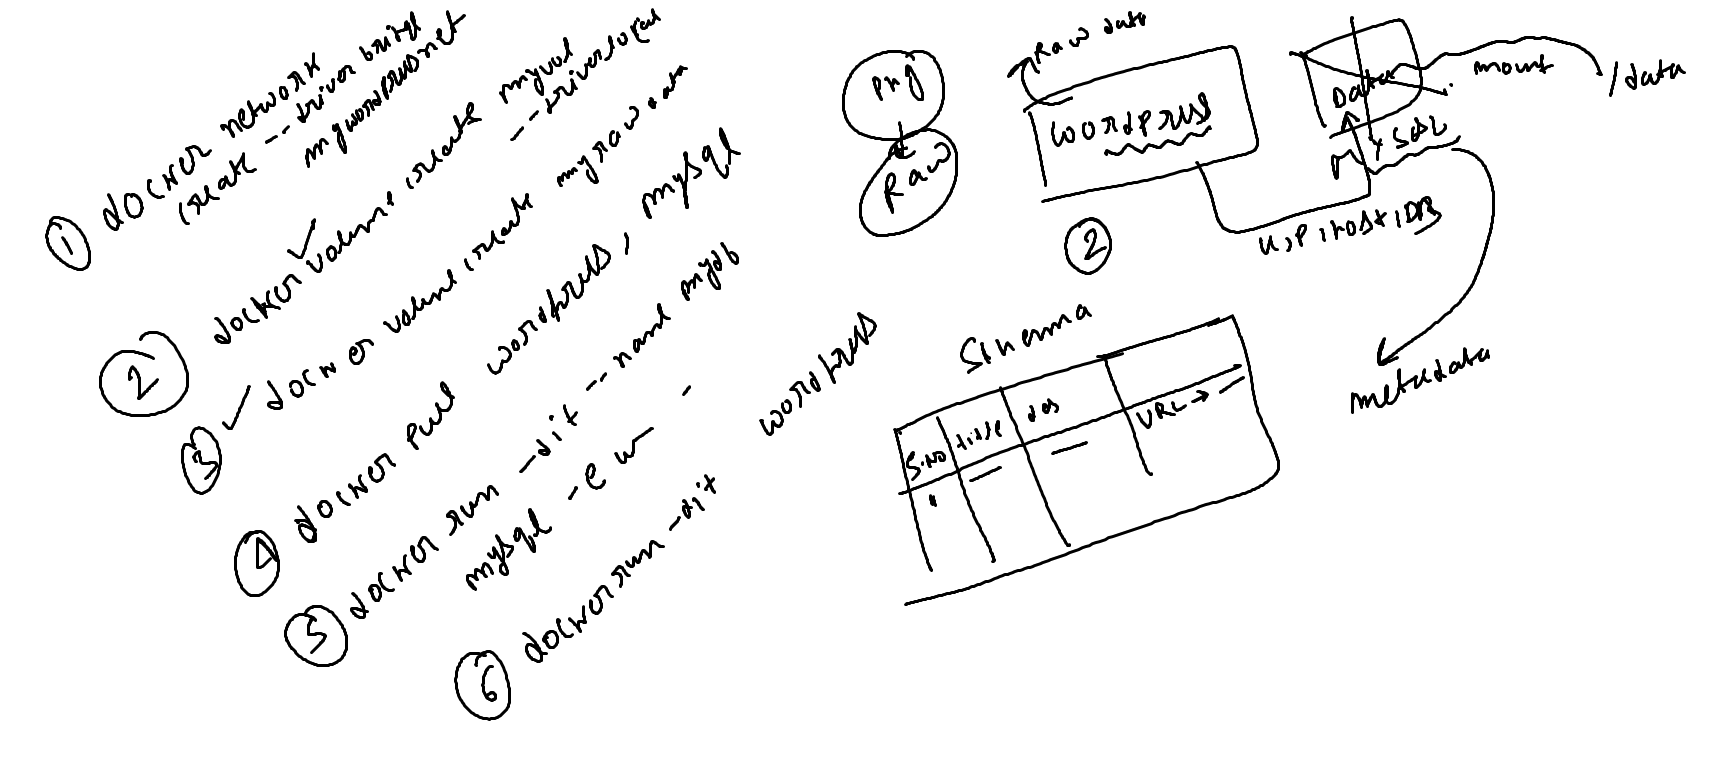 ① docker network
create -- driver bridge
mywordpressnet
② docker volume create myvol
-- driver local
③ docker volume create myrawdata
④ docker pull wordpress, mysql
⑤ docker run -dit -- name mydb
mysql -e w -
⑥ docker run -dit wordpress
png
Raw
Raw data
wordpress
②
Data
mount
/data
MySQL
U, P, Host, DB
metadata
Schema
S.NO title des URL →